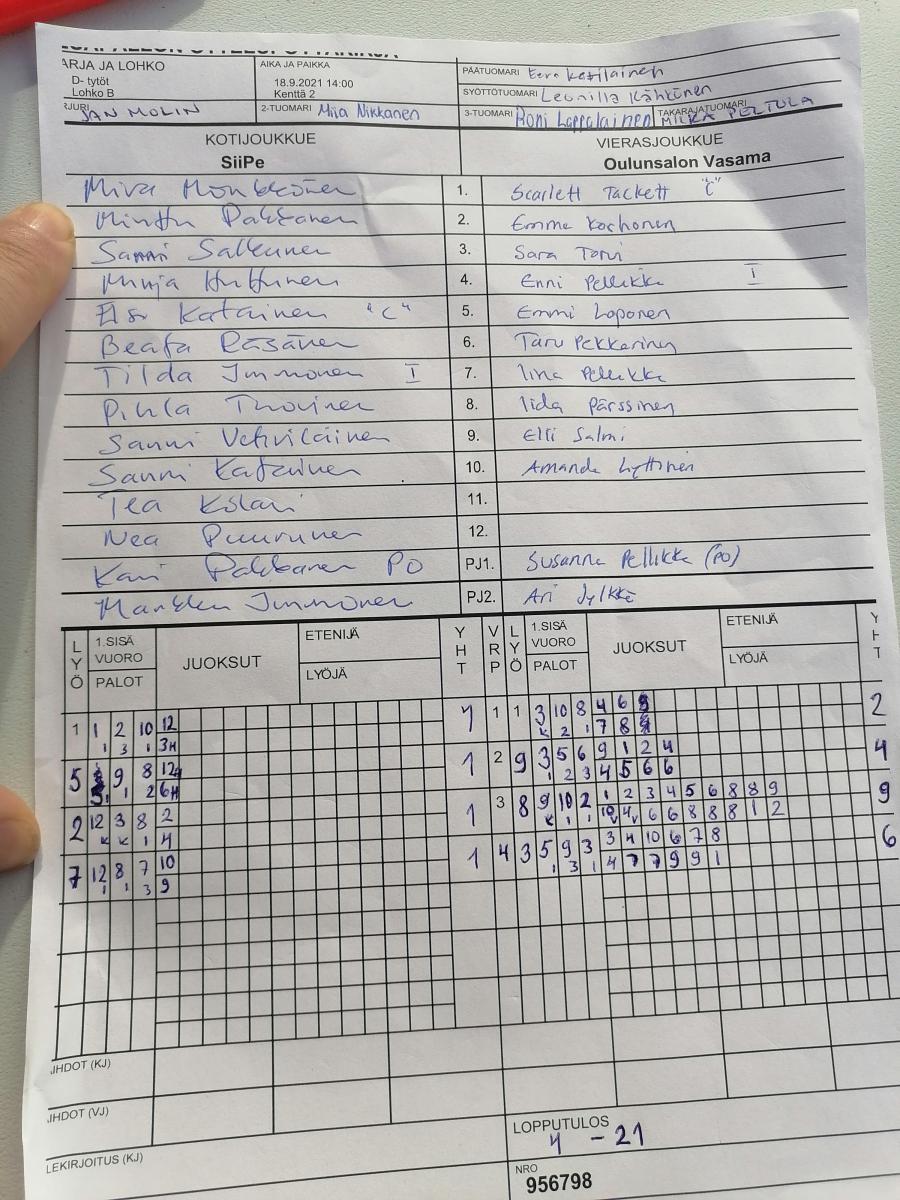 ARJA JA LOHKO AIKA JA PAIKKA PÄÄTUOMARI Eero Ketilainen
D- tytöt 18.9.2021 14:00 SYÖTTÖTUOMARI Leonilla Kähkönen
Lohko B Kenttä 2
JAN MOLIN 2-TUOMARI Miia Nikkanen 3-TUOMARI Roni Lappalainen TAKARAJATUOMARI MILKA PELTOLA
KOTIJOUKKUE VIERASJOUKKUE
SiiPe Oulunsalon Vasama
Mira Monkkönen 1. Scarlett Tackett "C"
Minttu Pakkanen 2. Emma Korhonen
Sanni Salkunen 3. Sara Torvi
Minja Huttunen 4. Enni Pellikka I
Elsi Katainen "C" 5. Emmi Loponen
Beata Räsänen 6. Taru Pekkarinen
Tilda Immonen I 7. Iina Pellikka
Pihla Tuovinen 8. Iida Pärssinen
Sanni Vehviläinen 9. Elli Salmi
Sanni Katainen 10. Amanda Lyttinen
Tea Kolari 11.
Nea Puurunen 12.
Kari Pakkanen PO PJ1. Susanna Pellikka (PO)
Markku Immonen PJ2. Ari Jylkkä
LYÖ 1.SISÄ VUORO PALOT JUOKSUT ETENIJÄ LYÖJÄ YHT VRP LYÖ 1.SISÄ VUORO PALOT JUOKSUT ETENIJÄ LYÖJÄ YHT
1 1 2 10 12 1 1 1 3 10 8 4 6 9 2
1 3 1 3H K 2 1 7 8
5 9 8 12 1 2 9 3 5 6 9 1 2 4 4
1 2 6H 1 2 3 4 5 6 6
2 12 3 8 2 1 3 8 9 10 2 1 2 3 4 5 6 8 8 9 9
K K 1 4 K 1 1 10V 4V 6 6 8 8 8 1 2
7 12 8 7 10 1 4 3 5 9 3 3 4 10 6 7 8 6
1 1 3 9 1 3 1 4 7 7 9 9 1
JHDOT (KJ)
JHDOT (VJ)
LEKIRJOITUS (KJ) LOPPUTULOS
4 - 21
NRO
956798